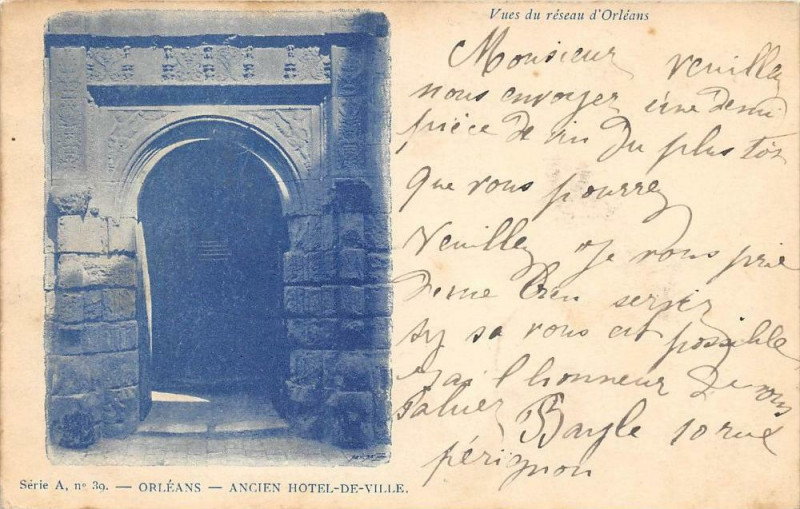 Vues du réseau d'Orléans
Monsieur veuillez
nous envoyez une demi
pièce de vin du plus tôt
que vous pourrez
Veuillez je vous prie
de me bien servir
sy sa vous est possible
j'ai l honneur de vous
saluez Bayle 10 rue
pérignon
Série A, nº 39. — ORLÉANS — ANCIEN HOTEL-DE-VILLE.